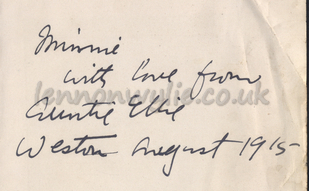 Minnie
with love from
lennonwylie.co.uk
Auntie Ellie
Weston August 1915